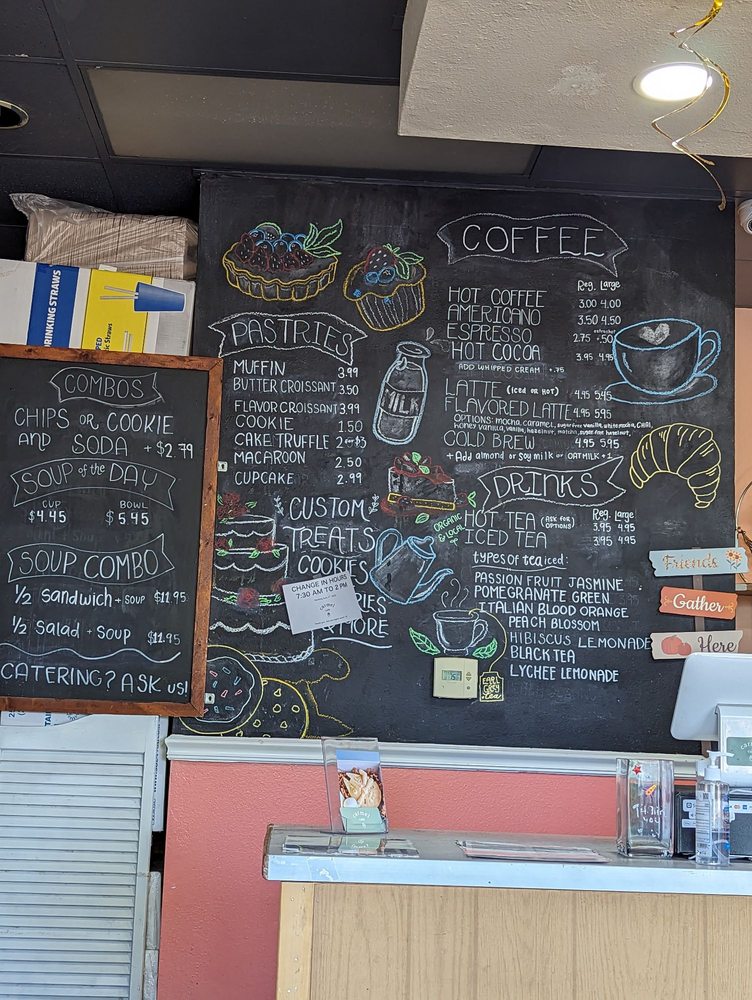 COMBOS
CHIPS OR COOKIE
AND SODA + $2 79
SOUP of the DAY
CUP BOWL
$4.45 $5.45
SOUP COMBO
1/2 Sandwich + SOUP $11.95
1/2 Salad + SOUP $11.95
CATERING? ASK us!
DRINKING STRAWS
PASTRIES
MUFFIN 3.99
BUTTER CROISSANT 3.50
FLAVOR CROISSANT 3.99
COOKIE 1.50
CAKE TRUFFLE
MACAROON 2.50
CUPCAKE 2.99
MILK
CUSTOM
TREATS
COOKIES
CHANGE IN HOURS
7:30 AM TO 2 PM
& MORE
ORGANIC
& LOCAL
COFFEE
Reg. Large
HOT COFFEE 3.00 4.00
AMERICANO 3.50 4.50
ESPRESSO 2.75 +.50
HOT COCOA 3.95 4.95
ADD WHIPPED CREAM +.75
LATTE (ICED OR HOT) 4.95 5.95
FLAVORED LATTE 4.95 5.95
OPTIONS: mocha, caramel, sugar free vanilla, white mocha, CHAI,
honey vanilla, vanilla, hazelnut, matcha, sugar free hazelnut
COLD BREW 4.95 5.95
+ Add almond or Soy milk or OATMILK +1
DRINKS
Reg. Large
HOT TEA (ASK FOR OPTIONS) 3.95 4.95
ICED TEA 3.95 4.95
types of tea iced:
PASSION FRUIT JASMINE
POMEGRANATE GREEN
ITALIAN BLOOD ORANGE
PEACH BLOSSOM
HIBISCUS LEMONADE
BLACK TEA
LYCHEE LEMONADE
EARL
GREY
tea
Friends
Gather
Here